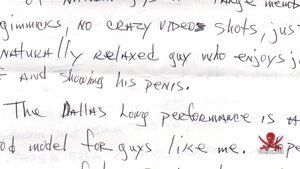 gimmicks, NO CRAZY VIDEO shots, jus
NATURALLY RELAXED guy who ENJOYS j
F AND showing his penis.
The DALLAS Long performance is
od model for guys like me.